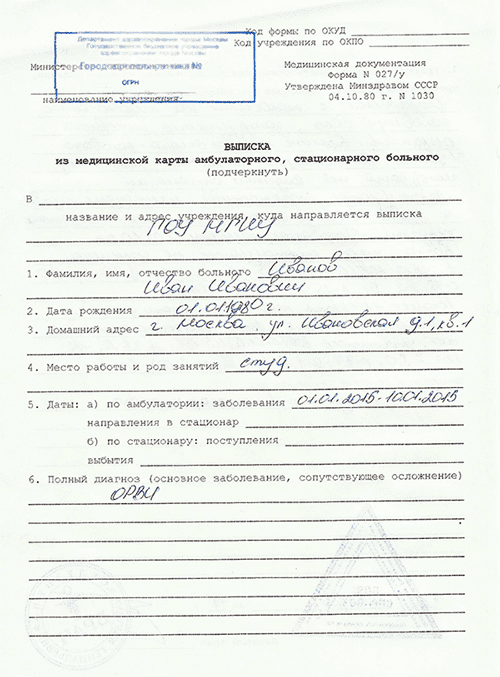 Код формы по ОКУД
Код учреждения по ОКПО
Департамент здравоохранения города Москвы
Государственное бюджетное учреждение
здравоохранения города Москвы
Министерство
Городская поликлиника №
ОГРН
наименование учреждения
Медицинская документация
Форма N 027/у
Утверждена Минздравом СССР
04.10.80 г. N 1030
ВЫПИСКА
из медицинской карты амбулаторного, стационарного больного
(подчеркнуть)
В
название и адрес учреждения, куда направляется выписка
ГОУ МГИУ
1. Фамилия, имя, отчество больного Иванов
Иван Иванович
2. Дата рождения 01.01.1980 г.
3. Домашний адрес г. Москва, ул. Ивановская д.1, кв.1
4. Место работы и род занятий студ.
5. Даты: а) по амбулатории: заболевания 01.01.2015-10.01.2015
направления в стационар
б) по стационару: поступления
выбытия
6. Полный диагноз (основное заболевание, сопутствующее осложнение)
ОРВИ